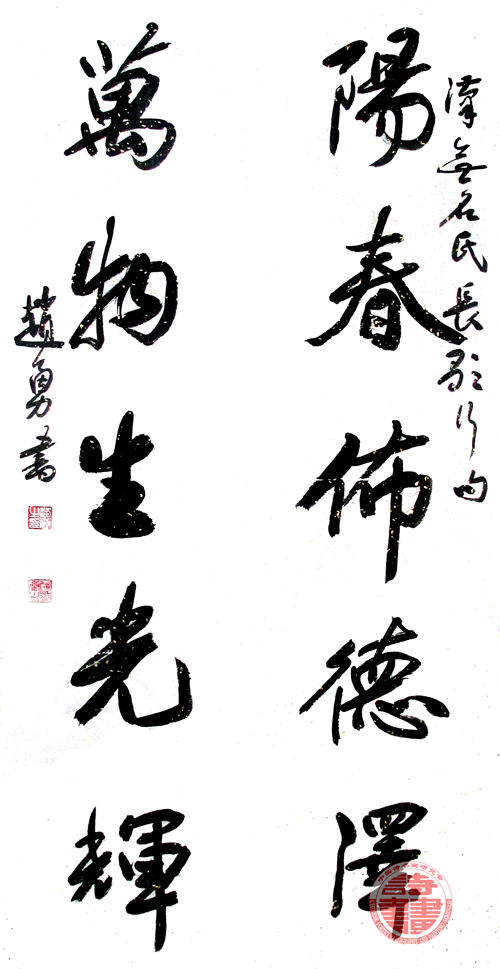 漢無名氏長歌行句
陽春佈德澤
萬物生光輝
趙勇書